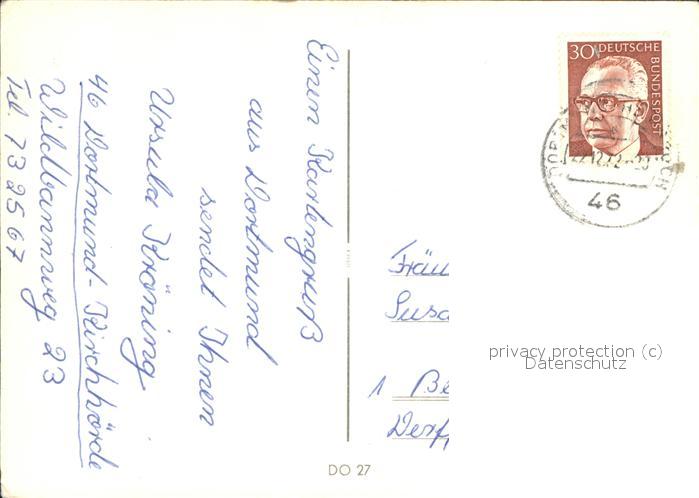 Einen Kartengruß
aus Dortmund
sendet Ihnen
Ursula Kröning
46 Dortmund-Kirchhörde
Wildbannweg 23
Tel. 732567
30 DEUTSCHE
BUNDESPOST
46
Fräu
Susa
1 Be
Derf
privacy protection (c)
Datenschutz
DO 27